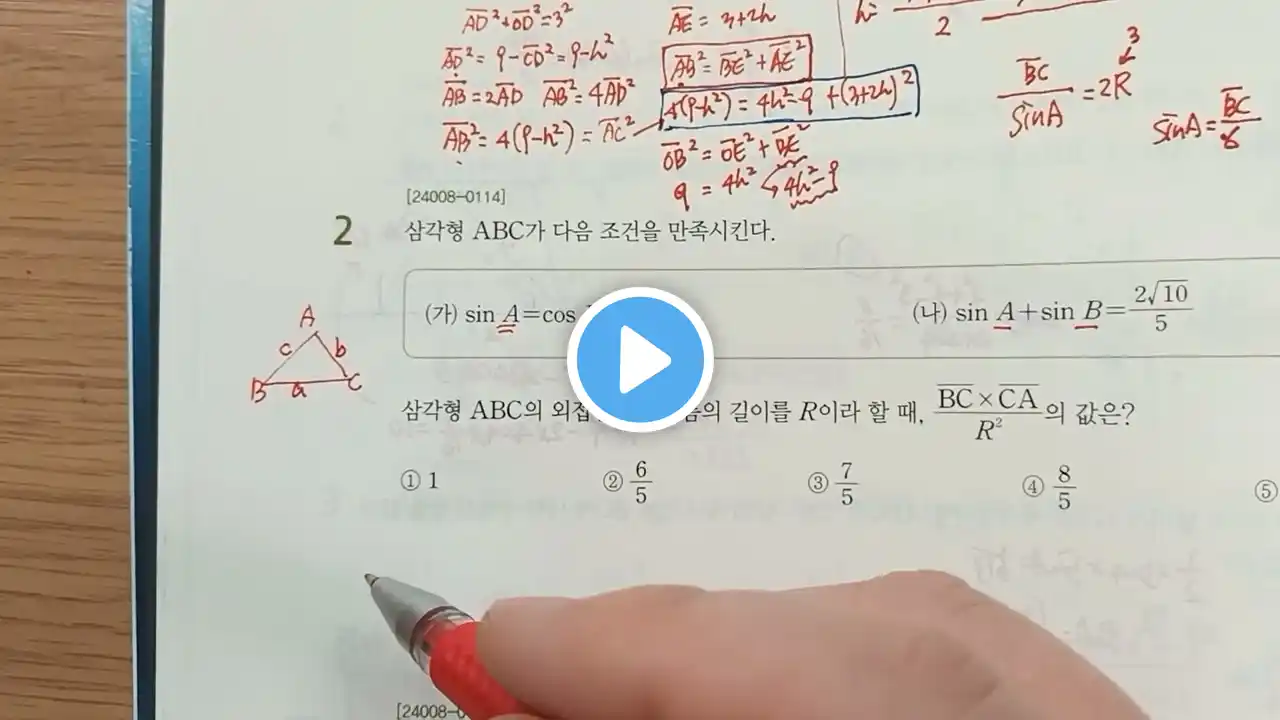 AD² + OD² = 3²
AD² = 9 - OD² = 9 - h²
AB = 2AD AB² = 4AD²
AB² = 4(9-h²) = AC²
AE = 3+2h
AB² = BE² + AE²
4(9-h²) = 4h²-9 + (3+2h)²
OB² = OE² + BE²
9 = 4h² 4h²-9
h= 2
BC/sinA = 2R 3
sinA = BC/6
[24008-0114]
2 삼각형 ABC가 다음 조건을 만족시킨다.
(가) sin A=cos (나) sin A+sin B=2√10/5
A
c b
B a C
삼각형 ABC의 외접 의 길이를 R이라 할 때, BC×CA/R² 의 값은?
① 1 ② 6/5 ③ 7/5 ④ 8/5 ⑤
[24008-0